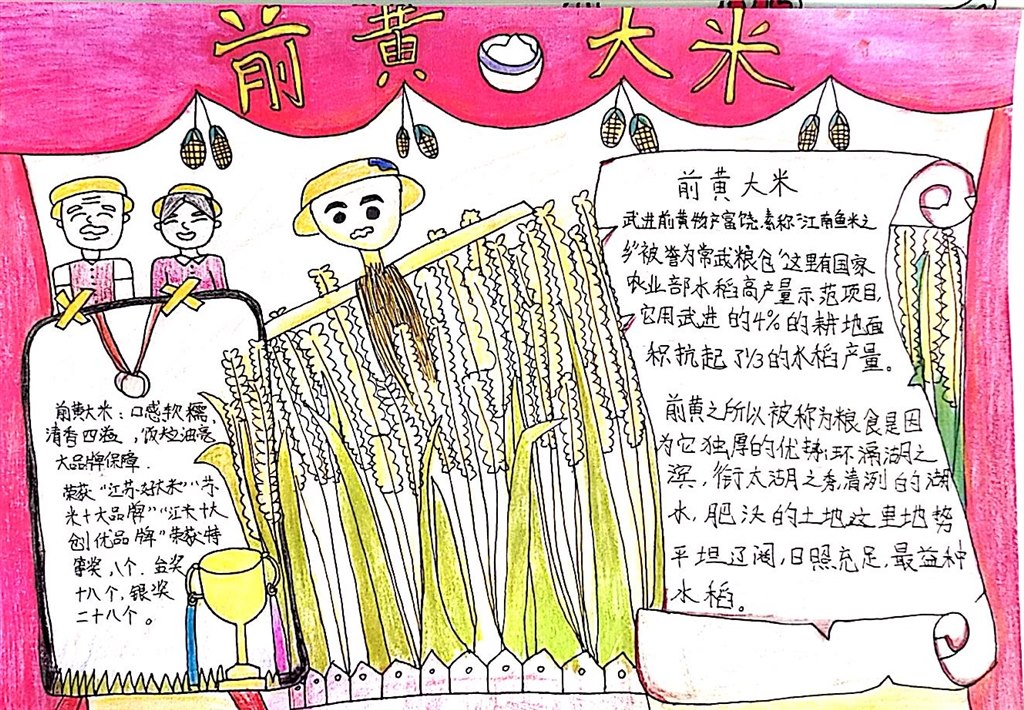 前黄大米
前黄大米
武进前黄物产富饶,素称“江南鱼米之
乡”被誉为常武粮仓”这里有国家
农业部水稻高产量示范项目,
它用武进的4%的耕地面
积抗起了1/3的水稻产量。
前黄之所以被称为粮食是因
为它独厚的优势,环滆湖之
滨,衔太湖之秀,清洌的湖
水,肥沃的土地这里地势
平坦辽阔,日照充足,最益种
水稻。
前黄大米:口感软糯,
清香四溢,饭粒油亮
大品牌保障.
荣获“江苏好大米”“苏
米十大品牌”“江米十大
创优品牌”荣获特
等奖,八个.金奖
十八个,银奖
二十八个。